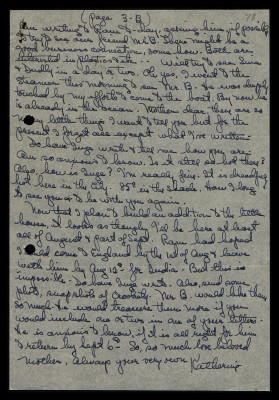 (page 3-B)
am writing to Ram to-day, asking him if possible
to try to see our friend Mr B. There might be a
good business connection, some how. Both are
interested in plastics etc. Will try to see Swa-
Dudly in a day or two. Oh yes, I went to the
steamer this morning to see Mr. B. He was deeply
touched by my effort to come to the boat. By now he
is already in the ocean. Mother, there are so
many little things I want to tell you but for the
present I forget all except what I've written-
Do have Inga write & tell me how you are.
Am so anxious to know. Is it still so hot there?
Also, how is Inga? I'm really fine. It is dreadfully
hot here in the city. 95° in the shade. How I long
to see you & to be with you again.
Now that I plan to build an addition to the little
house, it looks as though I'll be here at least
all of August & part of Sept. Ram had hoped
I could come to England by the 1st of Aug & leave
with him by Aug 12th for India. But this is
impossible. Do have Inga write. Also, send some
photos, snapshots of Cromarty. Mr B. would like them
so much & would treasure them more if you
would include one or two in one of your letters.
He is anxious to know, if it is all right for him
to return by Sept 6th. So, so much love beloved
mother. Always your very own Katherine